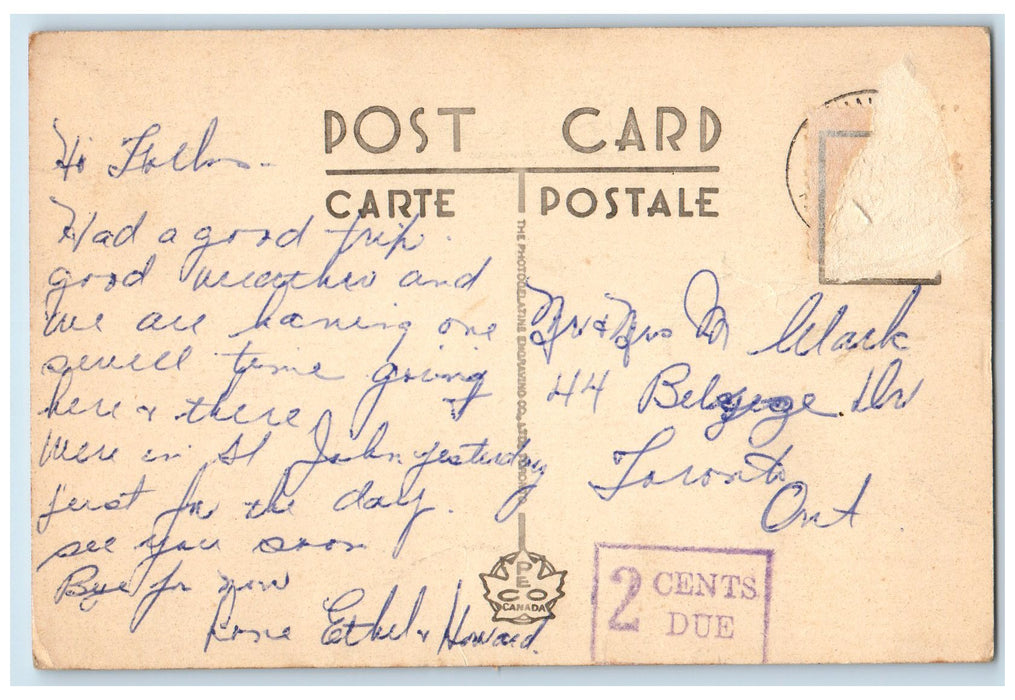 POST CARD
CARTE POSTALE
Hi Folks -
Had a good trip.
good weather and
we are having one
swell time going
here & there
Were in St John yesterday
just for the day.
see you soon
Bye for now
Love Ethel & Howard.
THE PHOTOGELATINE ENGRAVING CO., LTD. TORONTO
PECO
CANADA
Mr & Mrs M Clark
44 Dr
Toronto
Ont.
2 CENTS
DUE